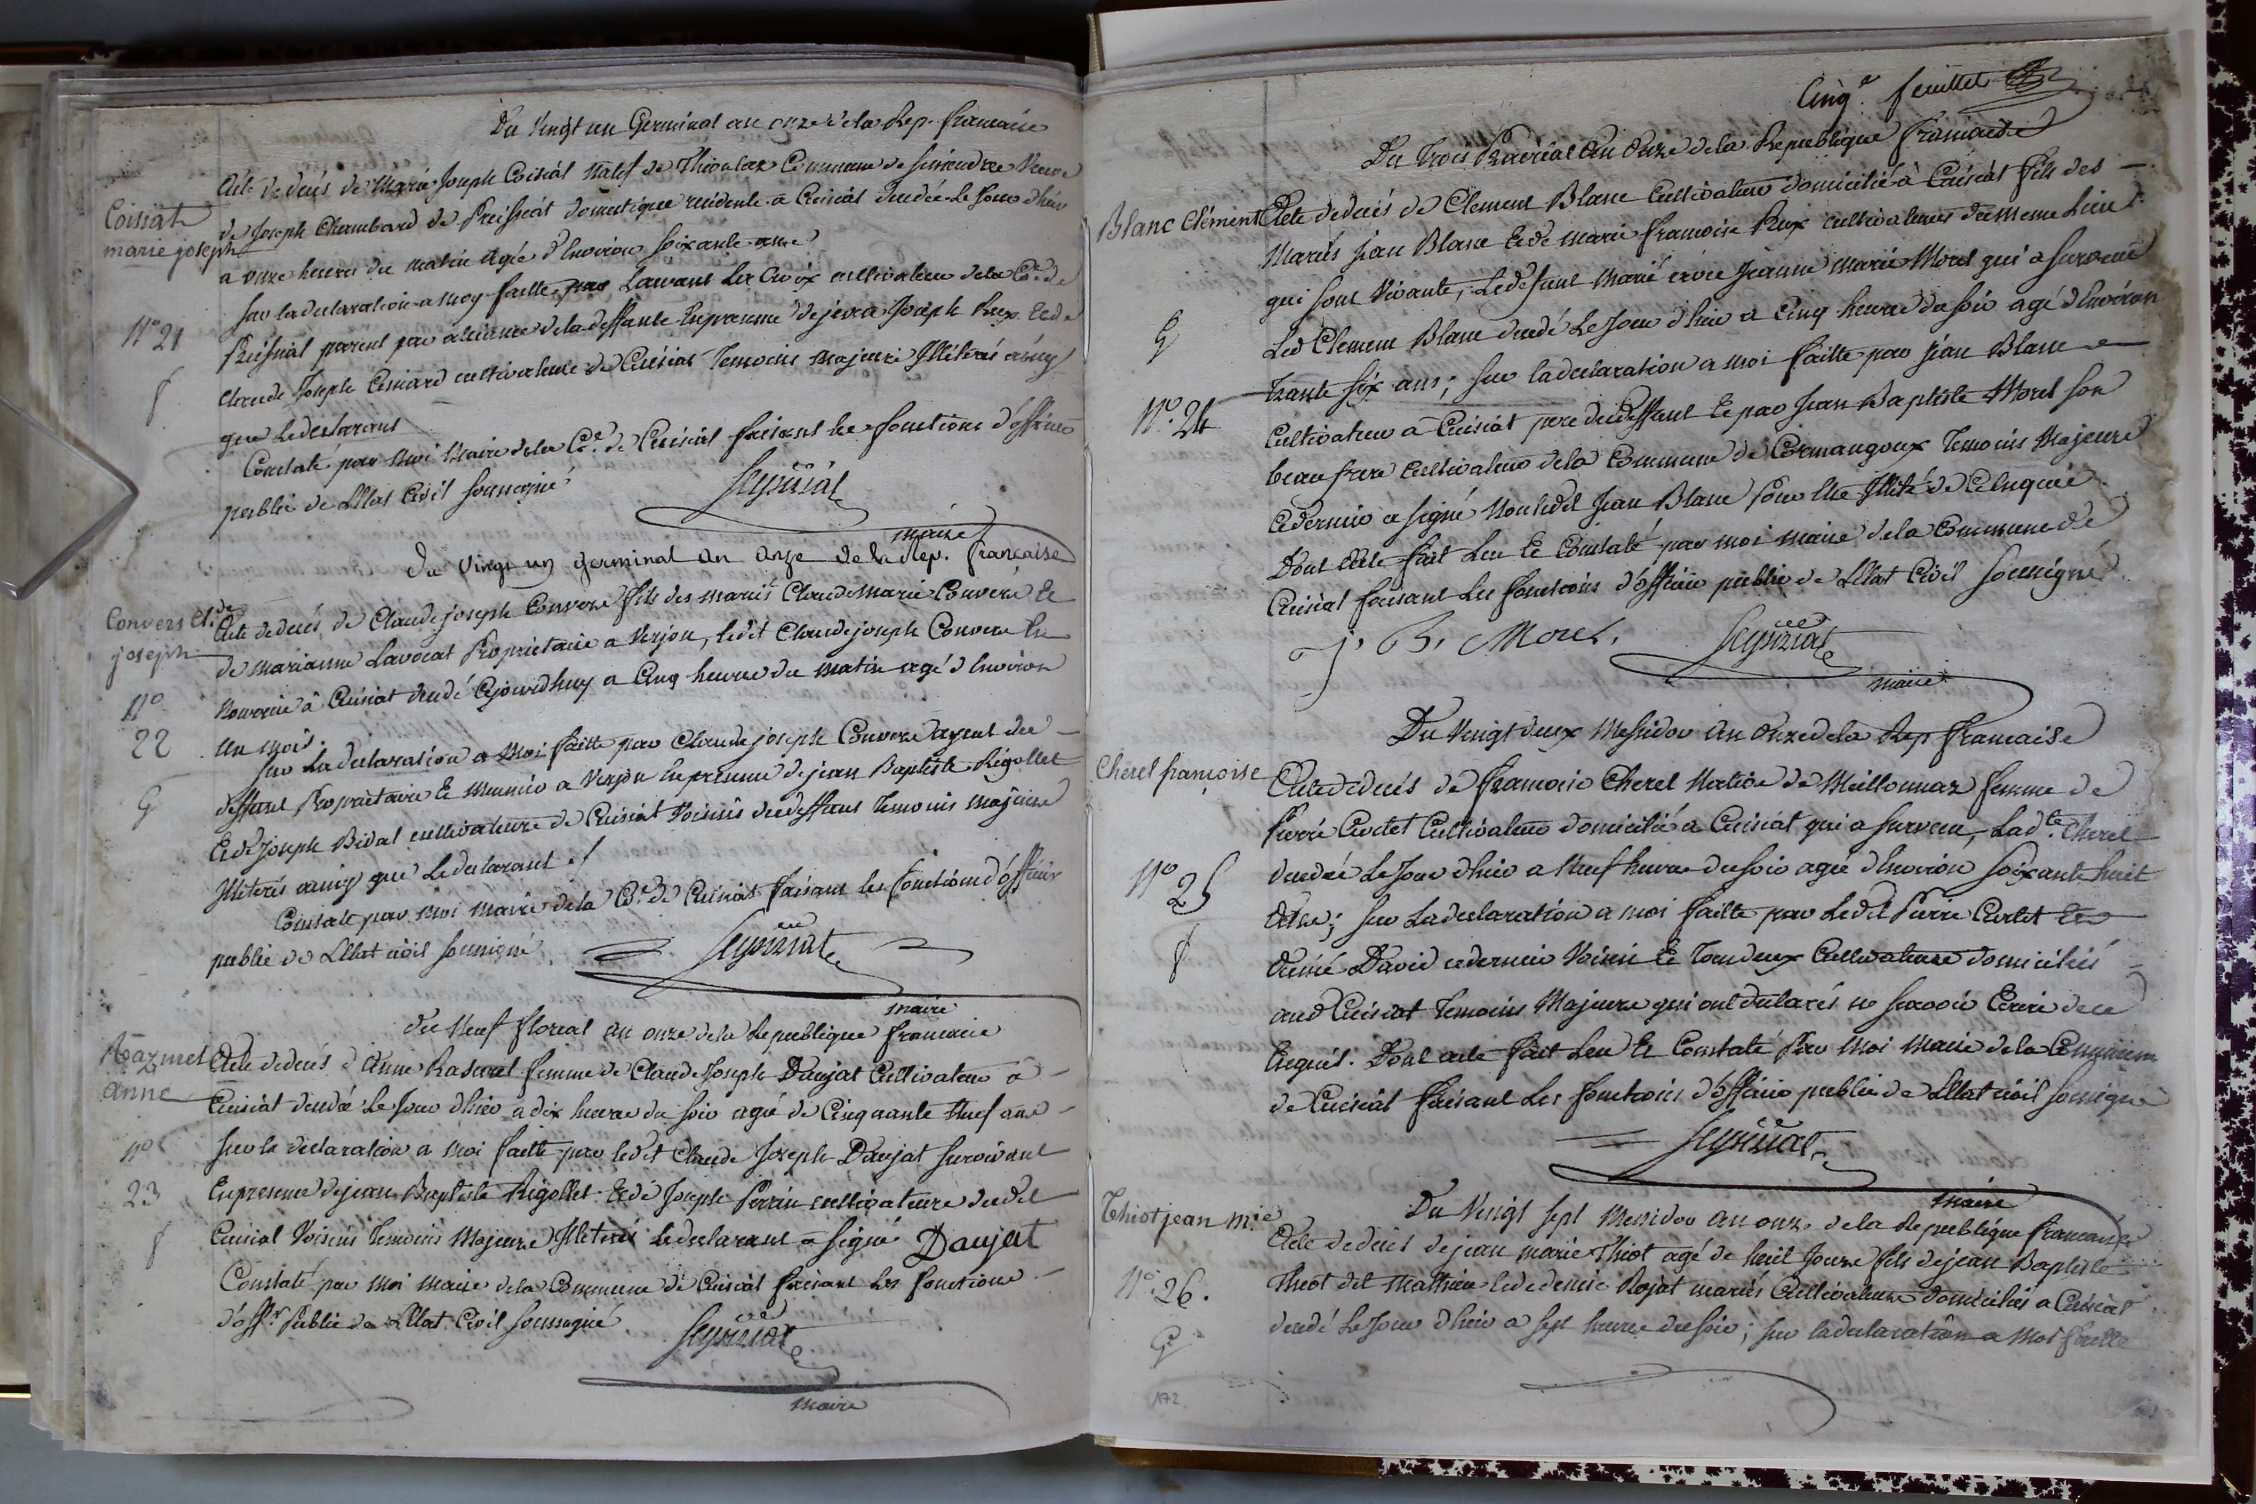 Du Vingt un Germinal an onze de la Rep. francaise
Coissat
marie joseph
N° 21
f
Acte de deces de Marie Joseph Coissat Natif de Thioulaz Commune de Simandre Veuve
de Joseph Chambard de Preissiat domestique residente a Cuisiat decedée le Jour d'hier
a onze heures du matin agée d'Environ soixante ans
sur la declaration a moy faitte par Laurent La Croix cultivateur de la Cne de
parent par aliance de la deffunte En presence de jean Joseph Rux Et de
Claude Joseph cultivateurs de Cuisiat Temoins majeurs Illiterés ainsy
que le declarant
Constate par Moi Maire de la Cne de Cuisiat faisant les fonctions d'officier
public de L'Etat Civil soussigné
maire
du vingt un germinal an onze de la Rep. française
Convers Cl.de
joseph
N°
22
G
Acte de deces de Claude joseph Convers fils des mariés Claude Marie Convers Et
de marianne Lavocat Proprietaire a Verjon, ledit Claude joseph Convers En
Nourrice à Cuisiat decedé Ajourdhuy a Cinq heures du matin agé d'Environ
un mois.
sur La declaration a Moi faitte par Claude joseph Convers parent du
deffunt Proprietaire Et Meunier a Verjon En presence de jean Baptiste Rigollet
Et de Joseph Bidal cultivateurs de Cuisiat Voisins du deffunt Temoins majeurs
Illiterés ainsy que Le declarant
Constaté par Moi Maire de la Cne de Cuisiat faisant les fonctions d'officier
public de L'Etat civil soussigné
maire
du Neuf floreal an onze de la Republique francaise
Razurel
anne
N°
23
f
Acte de deces d'Anne Rasurel femme de Claude Joseph Daujat Cultivateur a
Cuisiat decedée Le Jour d'hier a dix heures du soir agée de Cinquante Neuf ans
sur la declaration a Moi faitte par ledit Claude Joseph Daujat survivant
En presence de jean Baptiste Rigollet Et de Joseph Perrin cultivateurs dudit
Cuisiat Voisins Temoins Majeurs Illiterés le declarant a signé Daujat
Constaté par Moi Maire de la Commune de Cuisiat faisant les fonctions
d'offr Public de L'Etat Civil soussigné
maire
Cinqe feuillet
Du Trois Prairéal An Onze de la Republique francaise
Blanc Clément
G
N° 24
Acte de deces de Clement Blanc Cultivateur domicilié à Cuisiat fils des
Mariés jean Blanc Et de marie francoise Rux cultivateurs du meme Lieu
qui sont Vivants, Le defunt Marié avec Jeanne marie Morel qui a survecu
Led Clement Blanc decedé Le Jour d'hier a Cinq heures du soir agé d'Environ
Trante six ans; sur la declaration a moi faitte par jean Blanc
Cultivateur a Cuisiat pere du deffunt Et par Jean Baptiste Morel son
beau frere Cultivateur de la Commune de Cormangoux Temoins Majeurs
Ce dernier a signé Non ledit Jean Blanc pour Etre Illité de Ce Enquié
Dont Acte fait Leu Et Constaté par moi maire de la Commune de
Cuisiat faisant Les fonctions d'officier public de L'Etat Civil soussigné
J. B. Morel.
maire
Du Vingt deux Messidor An Onze de la Rep francaise
Cherel françoise
N° 25
f
Acte de deces de francoise Cherel Native de Meillonnaz femme de
Pierre Curtet Cultivateur domicilié a Cuisiat qui a survecu, Lad.te Cherel
decedée Le Jour d'hier a Neuf heures du soir agée d'Environ soixante huit
Ans; sur La declaration a moi faitte par Ledit Pierre Curtet Et
David ce dernier Voisin Et Tous deux Cultivateurs domiciliés
aud Cuisiat Temoins Majeurs qui ont declarés ne savoir Ecrire de ce
Enquis. Dont acte fait Leu Et Constaté Par Moi Maire de la Commune
de Cuisiat faisant Les fonctions d'officier public de L'Etat civil soussigné
maire
Du Vingt sept Messidor An onze de la Republique francaise
Thiot jean m.ie
N° 26.
G
Acte de deces de jean marie Thiot agé de huit Jours fils de jean Baptiste
Thiot dit Mathieu Et de denise Rojat mariés Cultivateurs domiciliés a Cuisiat
decedé Le Jour d'hier a sept heures du soir; sur la declaration a Moi faitte
172